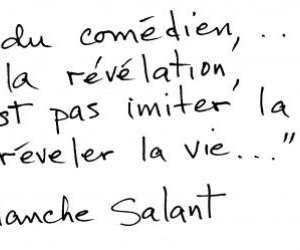 du comédien, ..
la révélation,
st pas imiter la
réveler la vie..."
lanche Salant